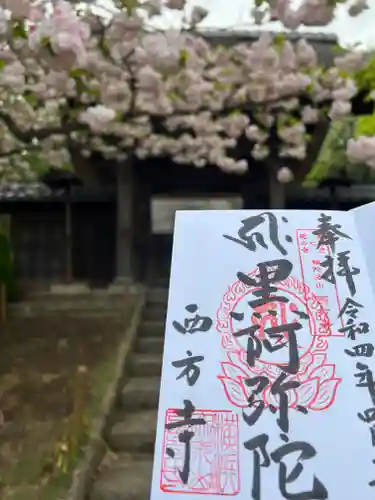 奉拝 令和四年四
黒阿弥陀
西方寺